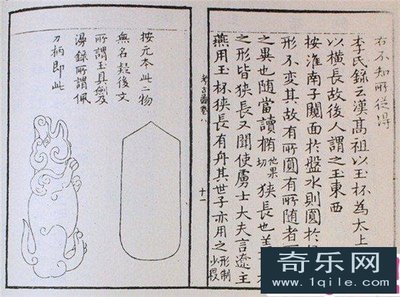 右不知所從得
李氏錄云漢高祖以玉杯為太上
以橫長故後人謂之玉東西
按淮南子闚面於盤水則圓於
形不變其故有所圓有所隨者
之異也隨當讀他果切狹長也
之形皆狹長又聞使虜士大夫言遼主
燕用玉杯狹長有舟其世子亦用之形制少殺
考古圖卷八
十一
按元本此二物
無名疑後文
所謂玉具劍及
湯錄所謂佩
刀柄即此
奇乐网
www.1qile.com